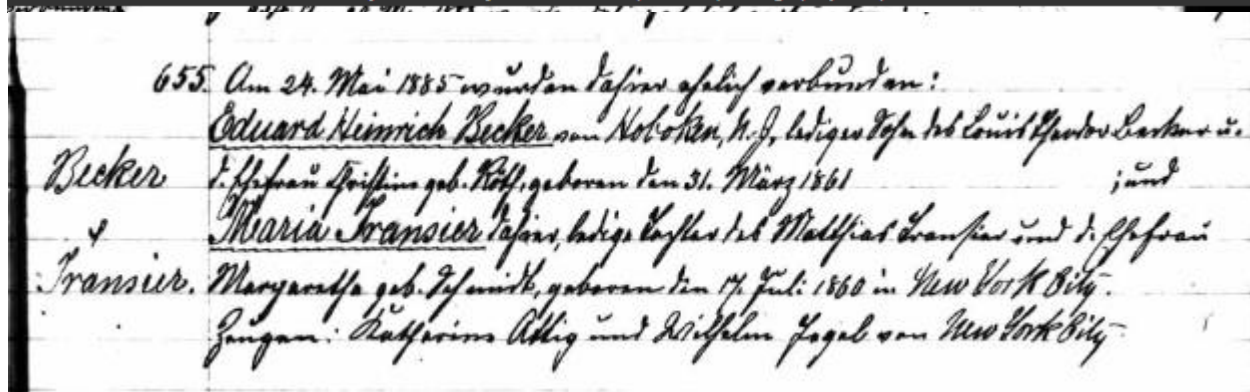 655. Am 24. Mai 1885 wurden dahier ehelich verbunden:
Eduard Heinrich Becker von Hoboken, N. J., lediger Sohn des Louis Theodor Becker u.
Becker d. Ehefrau Christine geb. Röth, geboren den 31. März 1861 ; und
& Maria Transier dahier, ledige Tochter des Matthias Transier und d. Ehefrau
Transier. Margaretha geb. Schmidt, geboren den 17. Juli 1860 in New York City.
Zeugen: Katharine Attig und Wilhelm von New York City